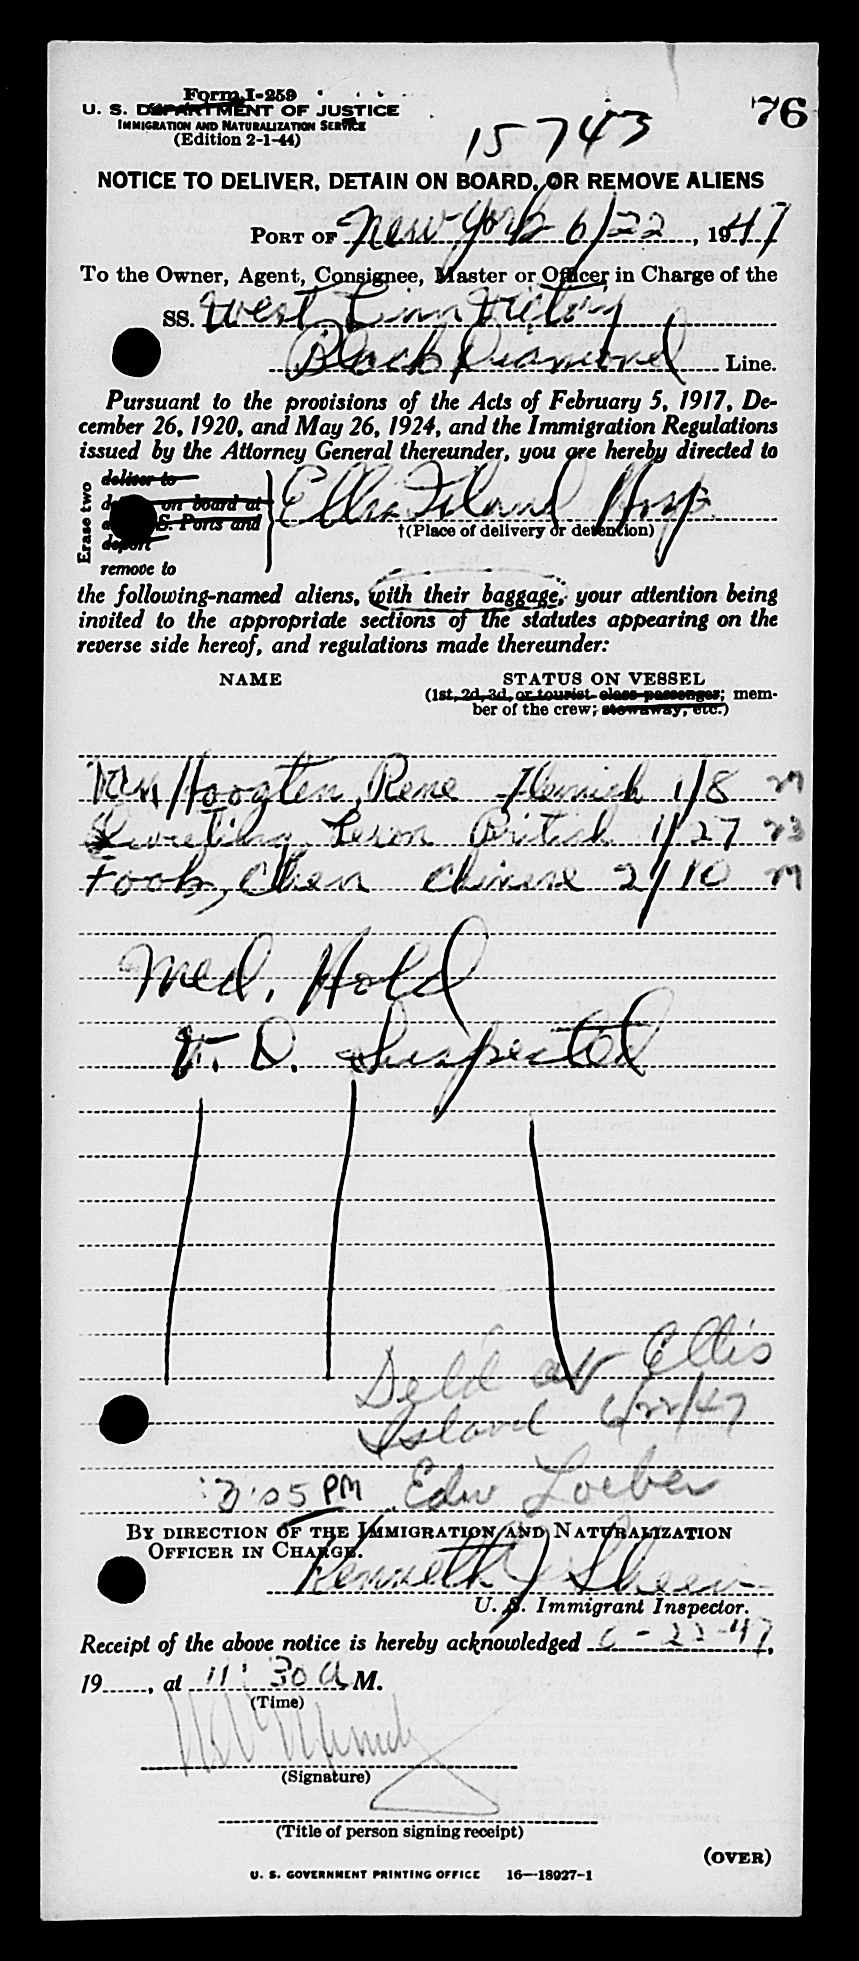 Form I-259
U. S. DEPARTMENT OF JUSTICE
IMMIGRATION AND NATURALIZATION SERVICE
(Edition 2-1-44)
76
15743
NOTICE TO DELIVER, DETAIN ON BOARD, OR REMOVE ALIENS
PORT OF New York 6/22, 1947
To the Owner, Agent, Consignee, Master or Officer in Charge of the
SS. West Linn Victory
Black Diamond Line.
Pursuant to the provisions of the Acts of February 5, 1917, De-
cember 26, 1920, and May 26, 1924, and the Immigration Regulations
issued by the Attorney General thereunder, you are hereby directed to
Erase two
deliver to
on board at
S. Ports and
deport
remove to
Ellis Island Hosp.
†(Place of delivery or detention)
the following-named aliens, with their baggage, your attention being
invited to the appropriate sections of the statutes appearing on the
reverse side hereof, and regulations made thereunder:
NAME STATUS ON VESSEL
(1st, 2d, 3d, or tourist class passenger; mem-
ber of the crew; stowaway, etc.)
Van Hoogten, Rene Flemish 1/8
Leron British 1/27 23
Foob, Chen Chinese 2/10
Med. Hold
V. D. Suspected
Del'd at Ellis
Island 6/22/47
3:05 PM Edw Loeber
BY DIRECTION OF THE IMMIGRATION AND NATURALIZATION
OFFICER IN CHARGE.
Kenneth J Sheen
U. S. Immigrant Inspector.
Receipt of the above notice is hereby acknowledged 6-22-47,
19......, at 11:30 A.M.
(Time)
(Signature)
(Title of person signing receipt)
(OVER)
U. S. GOVERNMENT PRINTING OFFICE 16—18027-1